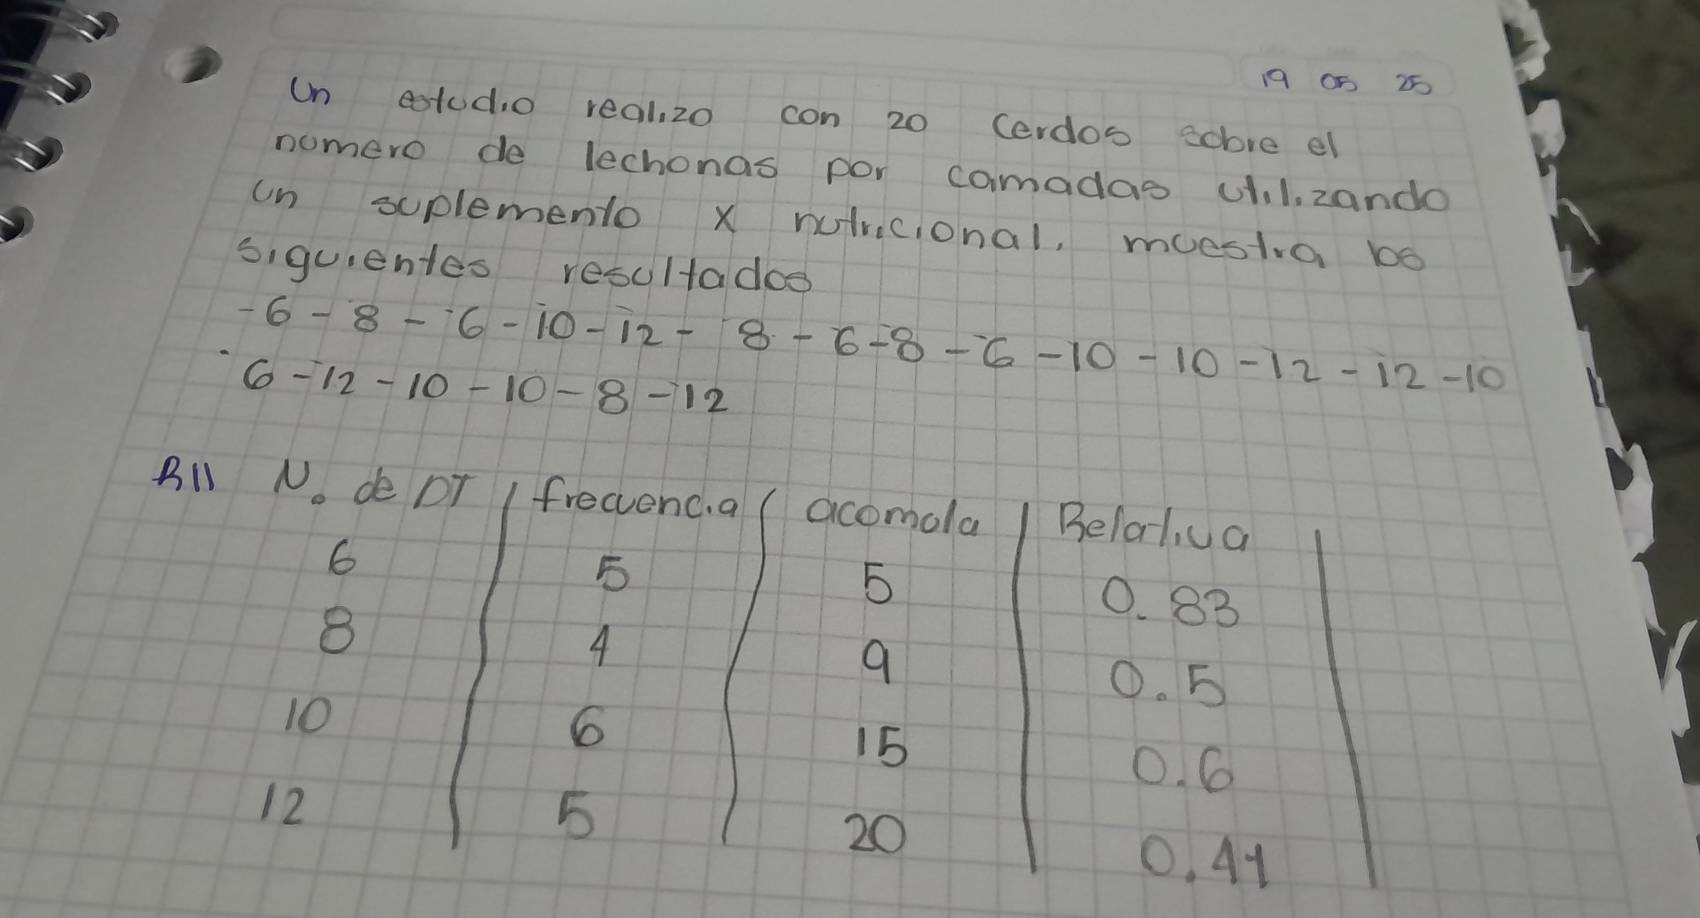 19 05 25
Un estudio realizo con 20 Cerdos sobre el
numero de lechonas por camadas utilizando
un suplemento X nutricional, muestra los
siguientes resultados
-6-8-6-10-12-8-6-8-6-10-10-12-12-10
6-12-10-10-8-12
R// N. de DT | frecuencia | acomola | Relativa |
6 5 5 0.83
8 4 9 0.5
10 6 15 0.6
12 5 20 0.41